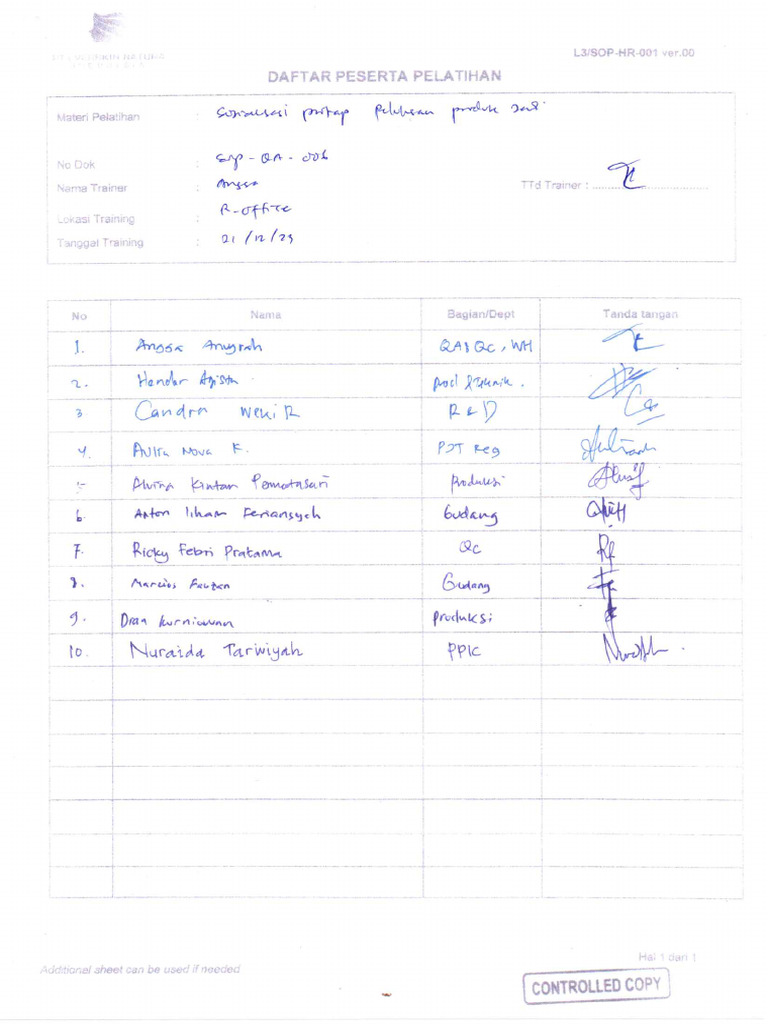 L3/SOP-HR-001 ver.00
DAFTAR PESERTA PELATIHAN
Materi Pelatihan : Sosialisasi produk
No Dok : SOP-QA-006
Nama Trainer : Angga TTd Trainer :
Lokasi Training : R-office
Tanggal Training : 21/12/23
No Nama Bagian/Dept Tanda tangan
1. Angga Anugrah QA&QC, WH
2. Hendar
3 Candra Weki R R & D
4. Aulia Nova K. PJT Reg
5. Alvira Kintan Permatasari Produksi
6. Anton Ilham Feriansyah Gudang
7. Ricky Febri Pratama QC
8. Marcios Fauzan Gudang
9. Dian Kurniawan Produksi
10. Nuraida Tarwiyah PPIC
Hal 1 dari 1
Additional sheet can be used if needed
CONTROLLED COPY